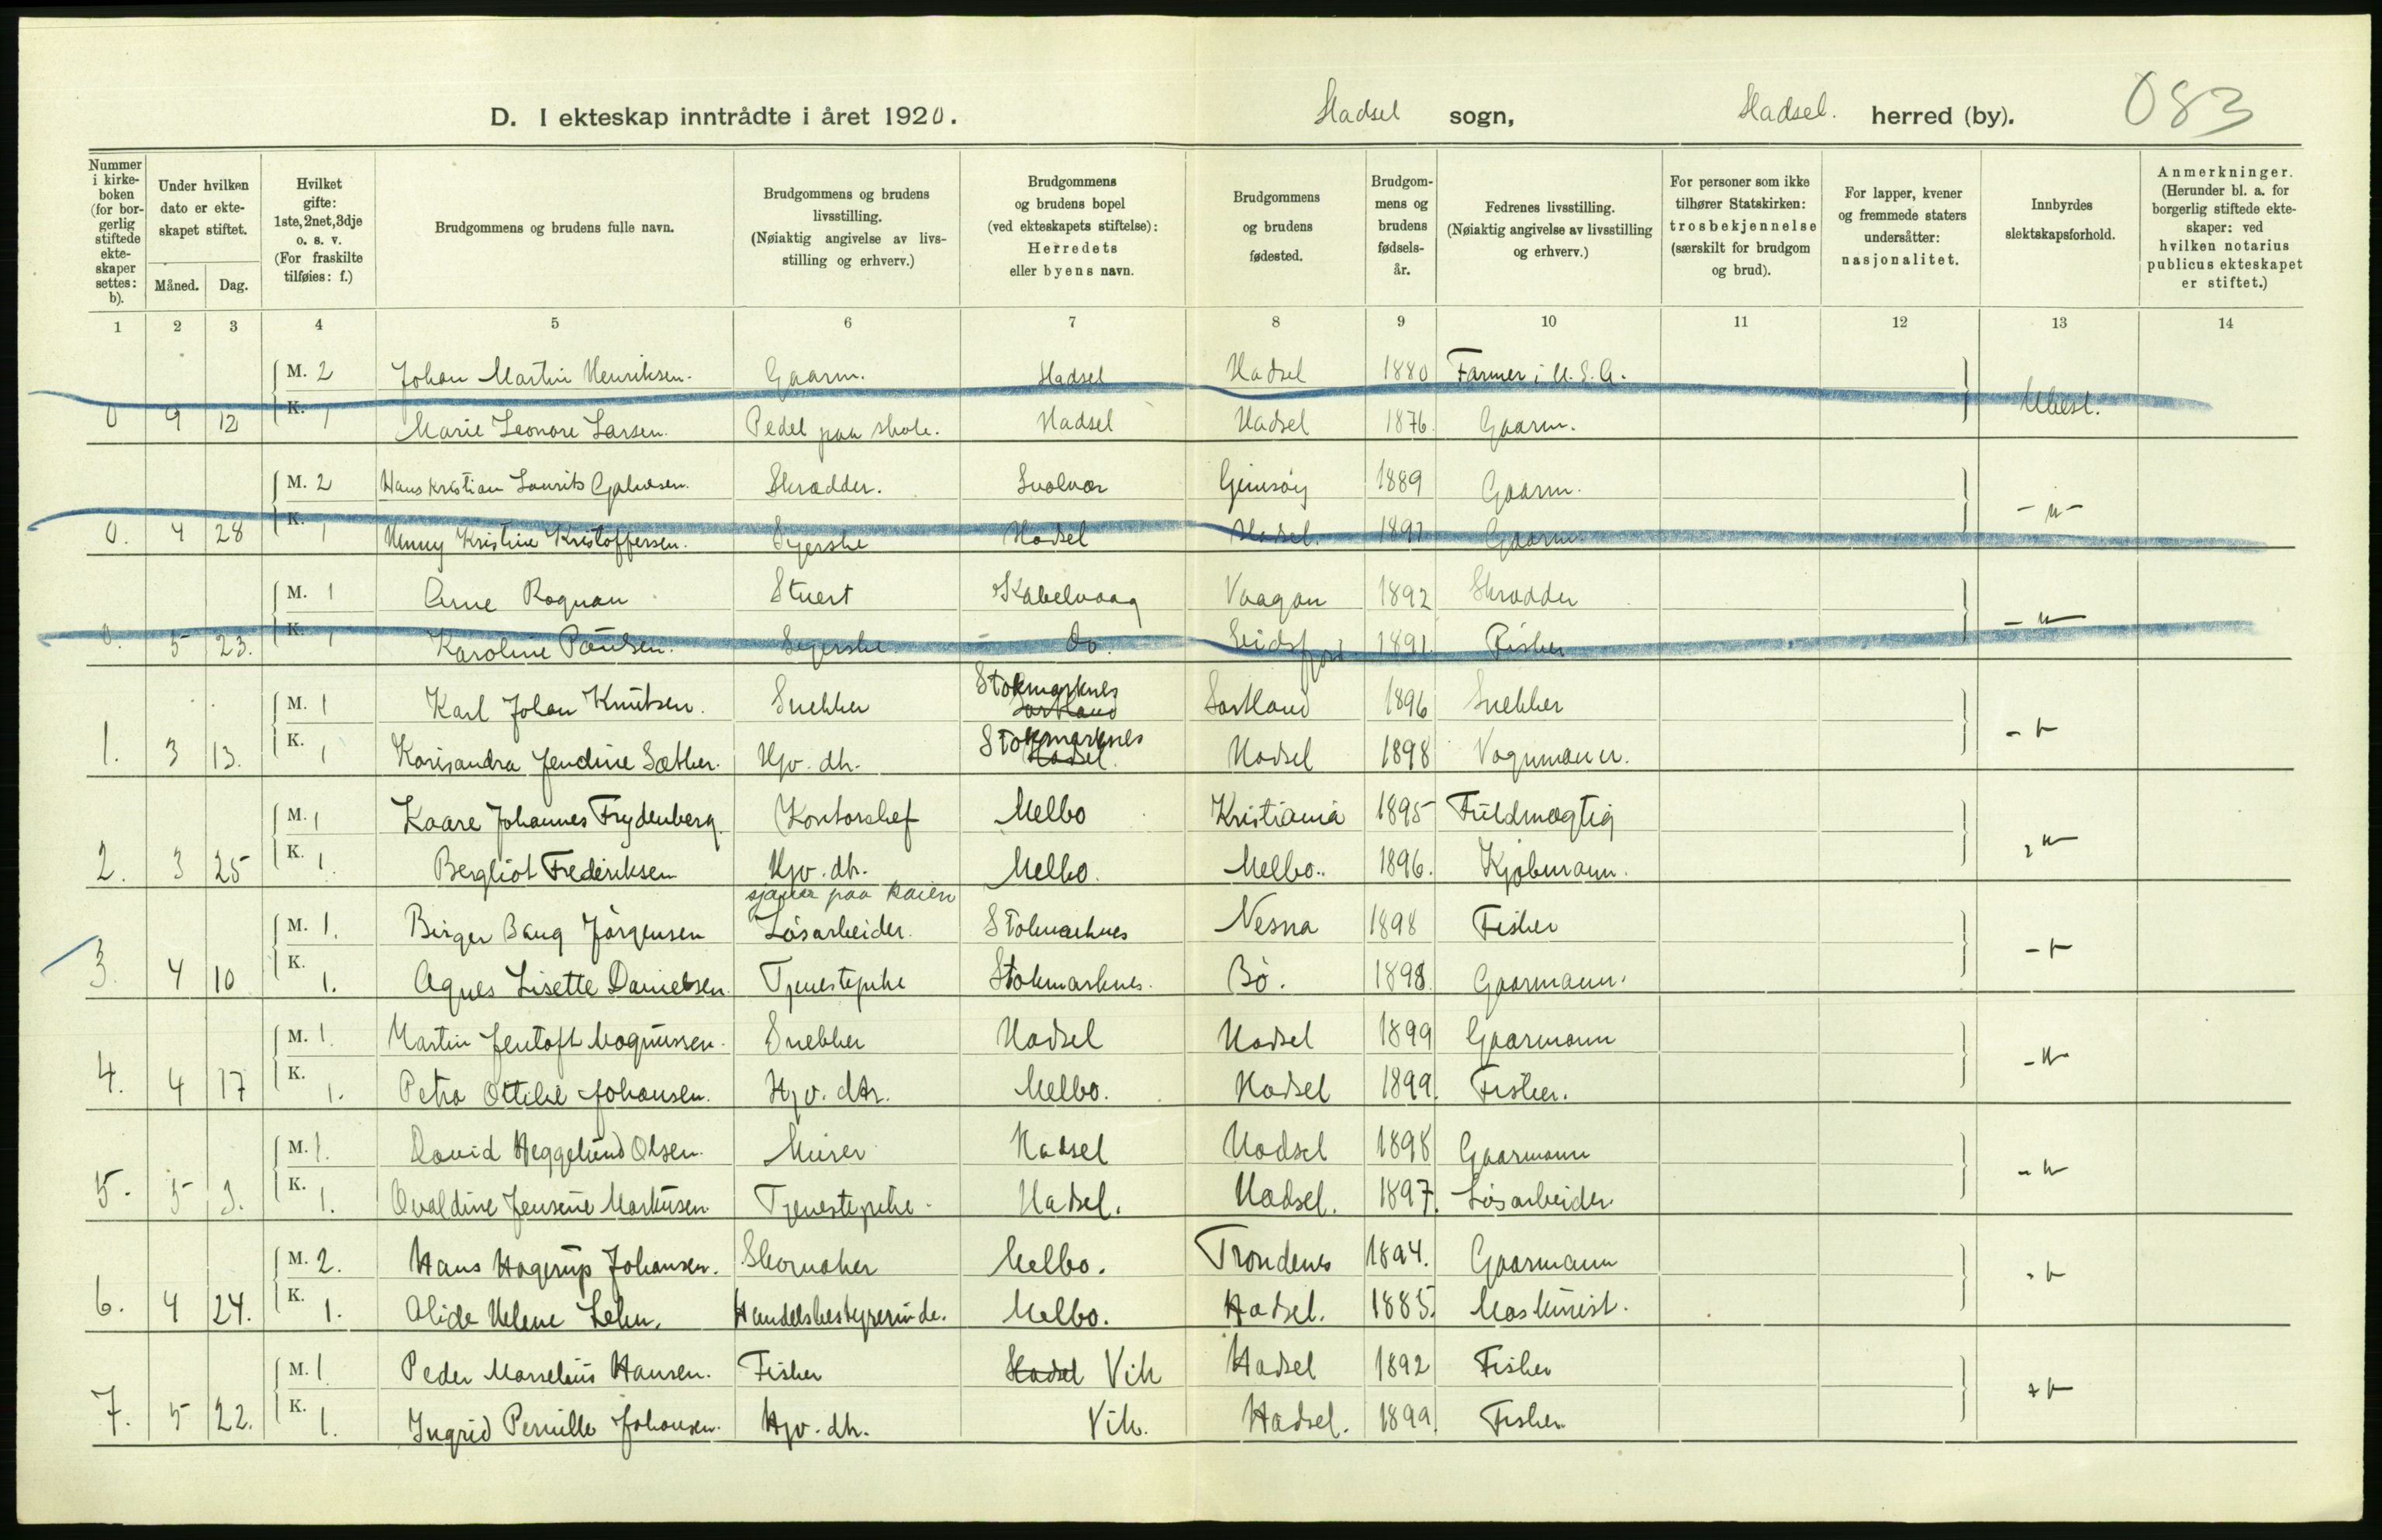 D. I ekteskap inntrådte i året 1920.
Hadsel sogn,
Hadsel. herred (by).
083
Nummer i kirke-boken (for bor-gerlig stiftede ekte-skaper settes: b).
Under hvilken dato er ekte-skapet stiftet.
Måned. Dag.
Hvilket gifte: 1ste, 2net, 3dje o. s. v. (For fraskilte tilføies: f.)
Brudgommens og brudens fulle navn.
Brudgommens og brudens livsstilling. (Nøiaktig angivelse av livs-stilling og erhverv.)
Brudgommens og brudens bopel (ved ekteskapets stiftelse): Herredets eller byens navn.
Brudgommens og brudens fødested.
Brudgom-mens og brudens fødsels-år.
Fedrenes livsstilling. (Nøiaktig angivelse av livsstilling og erhverv.)
For personer som ikke tilhører Statskirken: trosbekjennelse (særskilt for brudgom og brud).
For lapper, kvener og fremmede staters undersåtter: nasjonalitet.
Innbyrdes slektskapsforhold.
Anmerkninger. (Herunder bl. a. for borgerlig stiftede ekte-skaper: ved hvilken notarius publicus ekteskapet er stiftet.)
1 2 3 4 5 6 7 8 9 10 11 12 13 14
M. 2 Johan Martin Henriksen. Gaarm. Hadsel Hadsel 1880 Farmer i U.S.A.
0 9 12 K. 1 Marie Leonore Larsen. Pedel paa skole. Hadsel Hadsel 1876. Gaarm. Ubesl.
M. 2 Hans Kristian Laurits Skrædder. Svolvær Gimsøy 1889 Gaarm.
0. 4 28 K. 1 Henny Kristine Kristoffersen. Syerske Hadsel Hadsel. 1897 Gaarm. - " -
M. 1 Arne Rognan Stuert Kabelvaag Vaagan 1892 Skrædder
0. 5 23. K. 1 Karoline Paulsen. Syerske - Do. Eidsfjord 1891. Fisker - "
M. 1 Karl Johan Knutsen. Snekker Stokmarknes Sortland Sortland 1896 Snekker
1. 3 13. K. 1 Jendine Sæther. Hjv. dtr. Stokmarknes Hadsel. Hadsel 1898 Vognmann. - "
M. 1 Kaare Johannes Frydenberg. Kontorchef Melbo Kristiania 1895 Fuldmægtig
2. 3 25 K. 1. Bergliot Frederiksen Hjv. dtr. Melbo. Melbo.. 1896. Kjøbmann. - "
sjauer paa kaien
M. 1. Birger Bang Jørgensen Løsarbeider. Stokmarknes Nesna 1898 Fisker
3. 4 10 K. 1. Agnes Lisette Danielsen. Tjenestepike Stokmarknes. Bø. 1898. Gaarmann. - "
M. 1. Martin Jentoft Magnussen. Snekker Hadsel Hadsel 1899 Gaarmann
4. 4 17 K. 1. Petra Ottelie Johansen. Hjv. dtr. Melbo. Hadsel 1899. Fisker. - "
M. 1. David Heggelund Olsen. Murer Hadsel Hadsel 1898 Gaarmann
5. 5 3. K. 1. Ovaldine Jensine Markusen. Tjenestepike. Hadsel. Hadsel. 1897. Løsarbeider. - "
M. 2. Hans Hagerup Johansen. Skomaker Melbo. Trondenes 1894. Gaarmann
6. 4 24. K. 1. Alide Helene Lehn. Handelsbestyrerinde. Melbo. Hadsel. 1885. Maskinist. - "
M. 1. Peder Marselius Hansen. Fisker Hadsel Vik Hadsel 1892 Fisker
7. 5 22. K. 1. Ingrid Pernille Johansen. Hjv. dtr. Vik. Hadsel. 1899. Fisker. - "